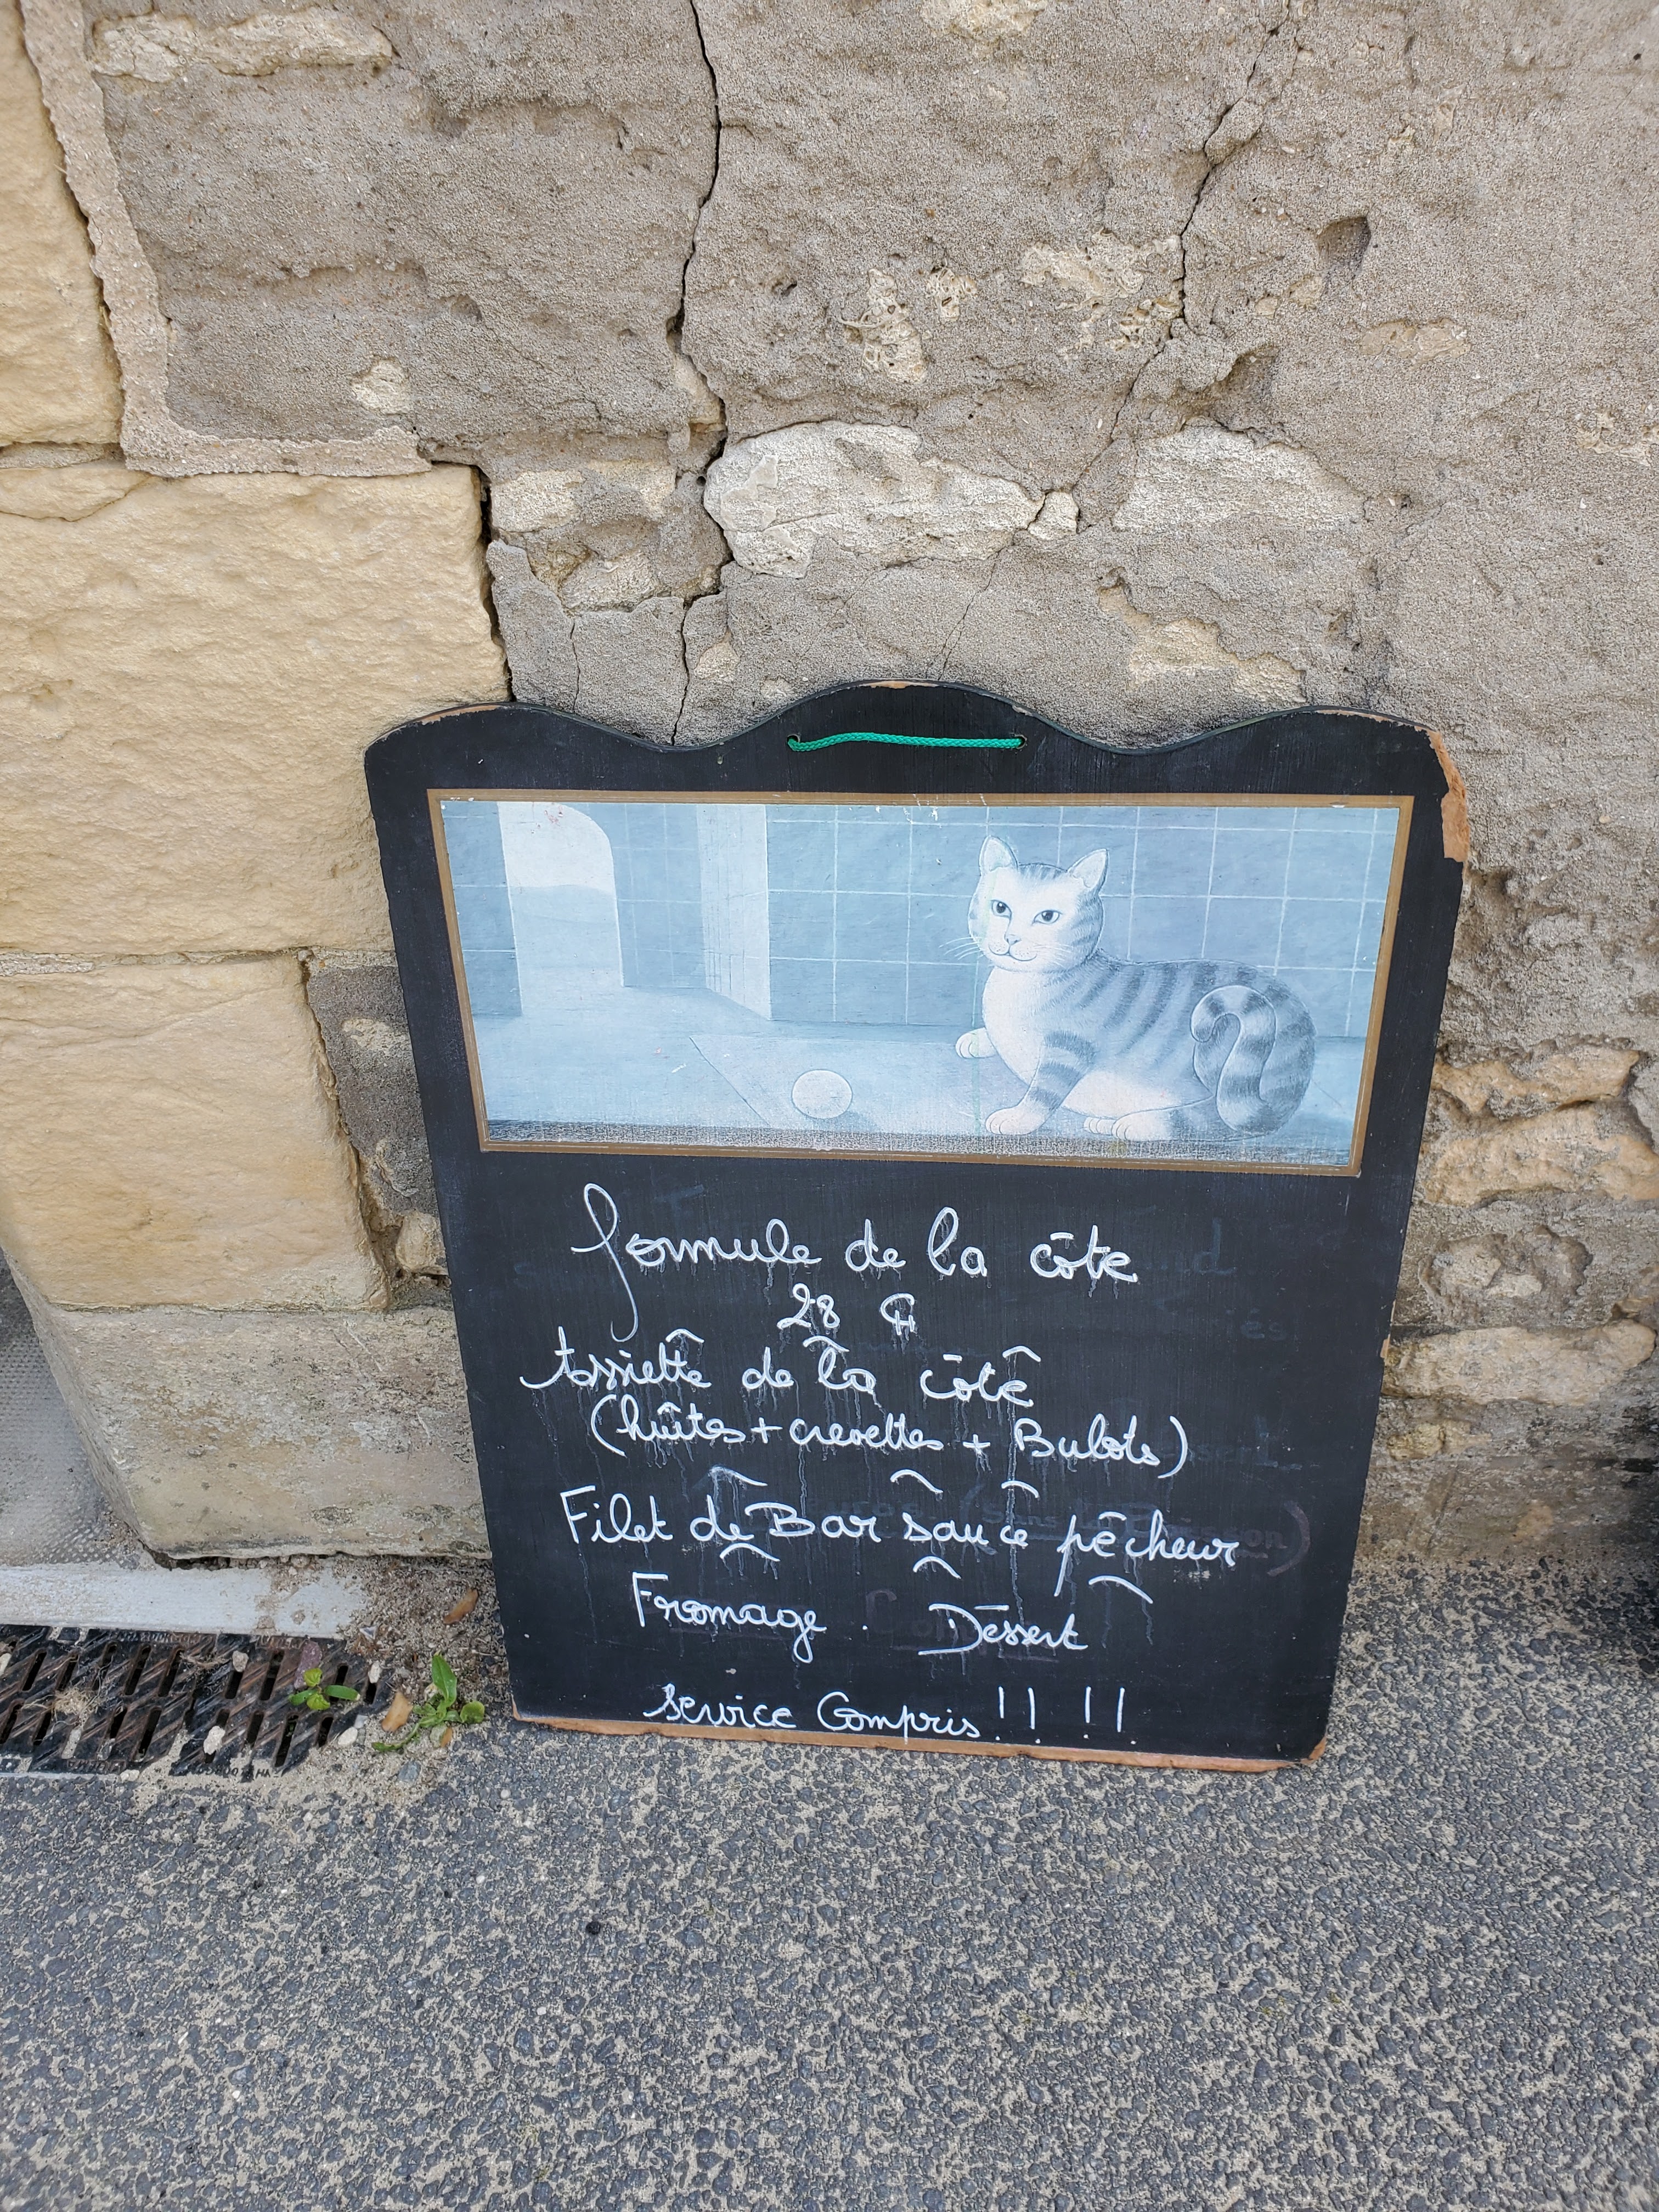 formule de la côte
28 €
Assiette de la côte
(huîtes + crevettes + Bulots)
Filet de Bar sauce pêcheur
Fromage . Dessert
service Compris !! !!